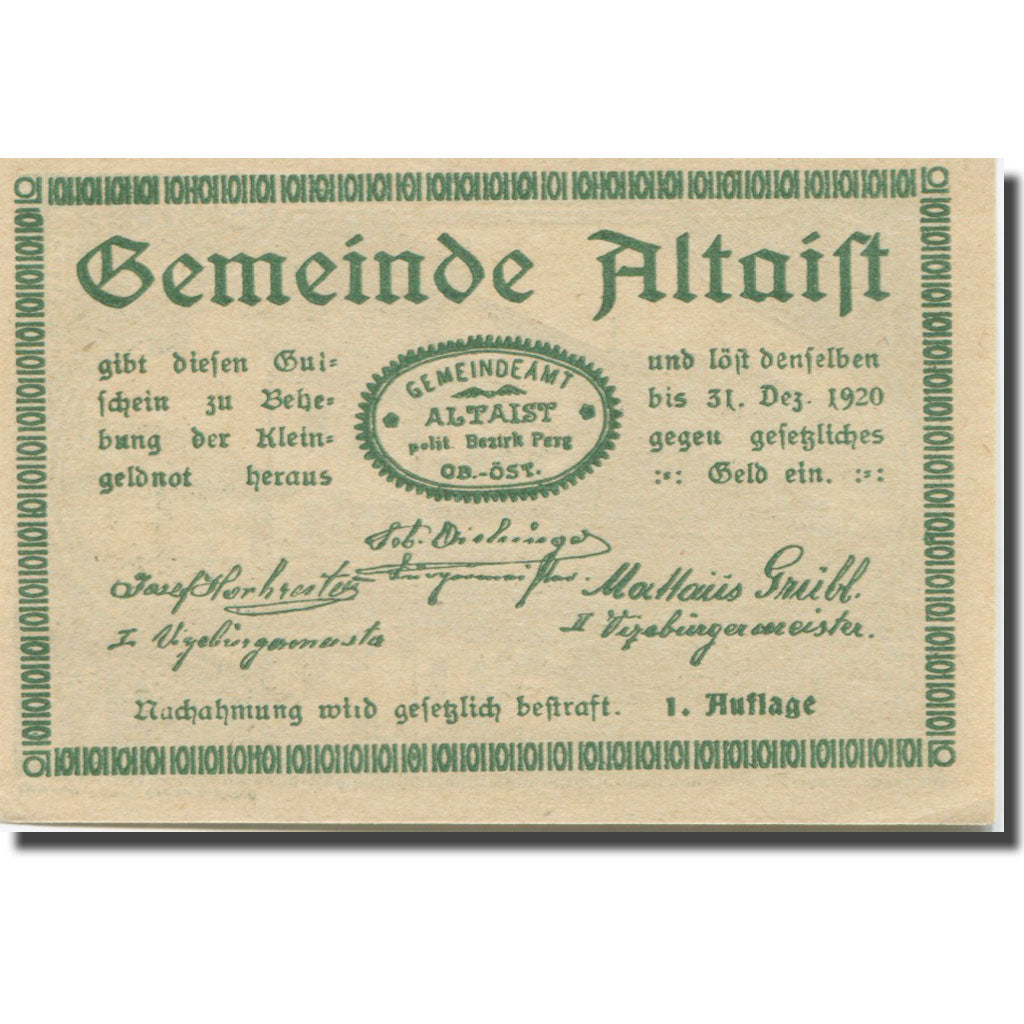 Gemeinde Altaist
gibt diesen Gut-
schein zu Behe-
bung der Klein-
geldnot heraus
GEMEINDEAMT
ALTAIST
polit. Bezirk Perg
OB.-ÖST.
und löst denselben
bis 31. Dez. 1920
gegen gesetzliches
:-: Geld ein. :-:
Bürgermeister.
Josef
I Vizebürgermeister
Mattäus Grübl.
II Vizebürgermeister.
Nachahmung wird gesetzlich bestraft. 1. Auflage